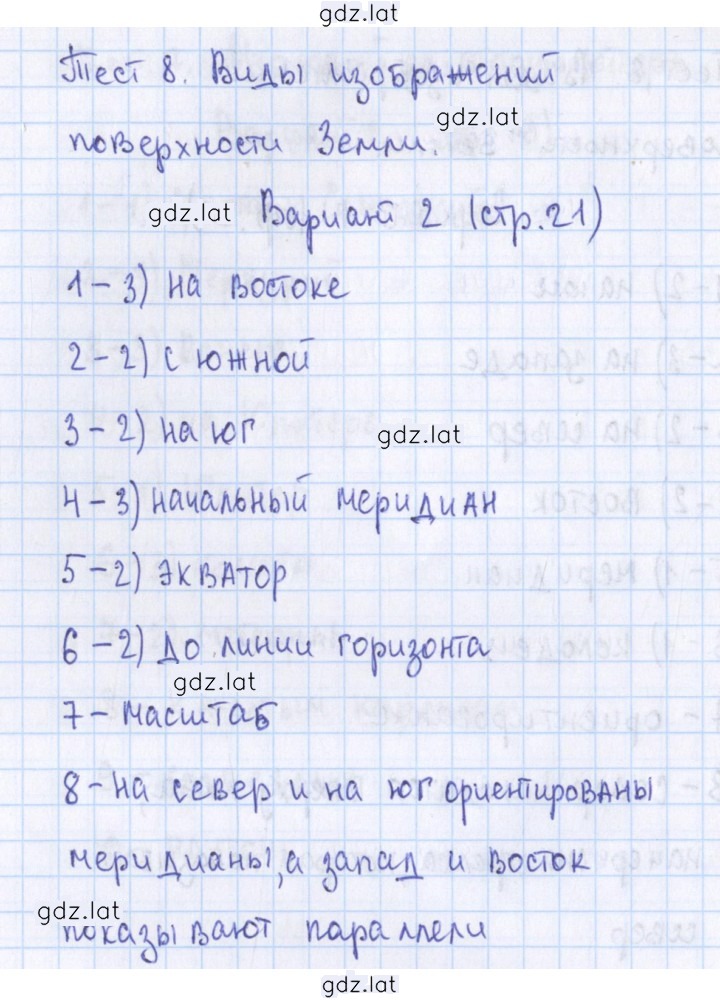 gdz.lat
Тест 8. Виды изображений
gdz.lat
поверхности Земли.
gdz.lat Вариант 2 (стр.21)
1-3) на востоке
2-2) с южной
3-2) на юг
gdz.lat
4-3) начальный меридиан
5-2) экватор
6-2) до линии горизонта
gdz.lat
7-масштаб
8-на север и на юг ориентированы
меридианы, а запад и восток
gdz.lat
показывают параллели
gdz.lat